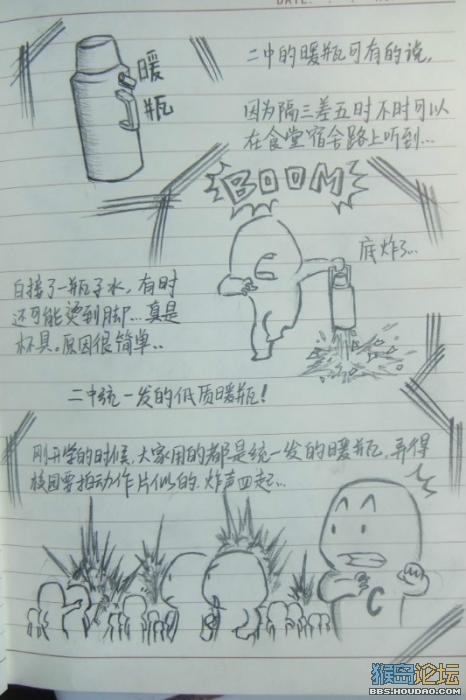 DATE.
暖
瓶
二中的暖瓶可有的说,
因为隔三差五时不时可以
在食堂宿舍路上听到...
BOOM
底炸了...
白接了一瓶子水,有时
还可能烫到脚...真是
杯具。原因很简单..
二中统一发的低质暖瓶!
刚开学的时候,大家用的都是统一发的暖瓶,弄得
校园要拍动作片似的.炸声四起...
C
猴岛论坛
BBS.HOUDAO.COM